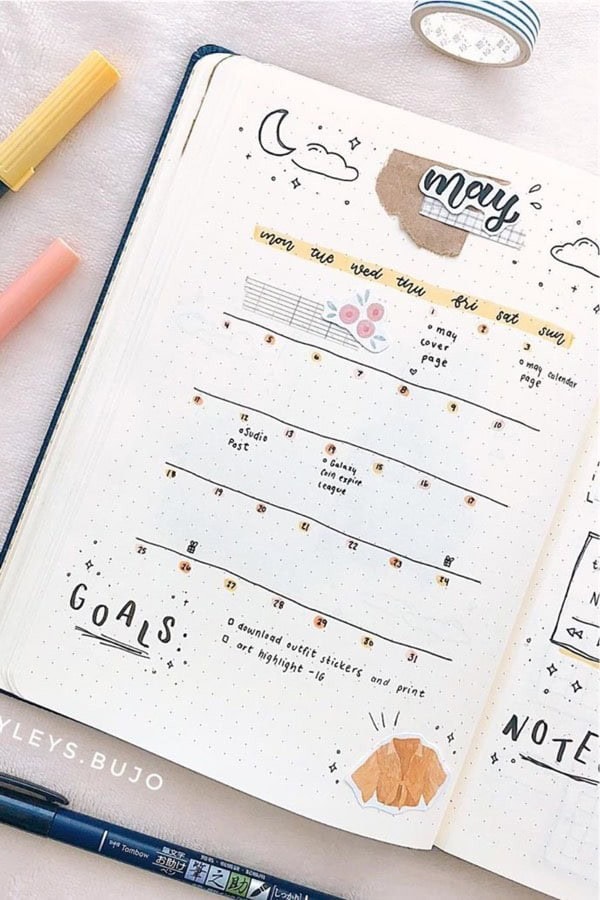 may
mon tue wed thu fri sat sun
1 2 3
o may
cover
page
o may calendar
page
4 5 6 7 8 9 10
11 12 13 14 15 16 17
o Sudio
Post
o Galaxy
coin expire
league
18 19 20 21 22 23 24
25 26 27 28 29 30 31
GOALS:
download outfit stickers and print
art highlight -IG
NOTE
YLEYS.BUJO
Tombow
筆文字
お助け
ペン
筆之助
しっかり